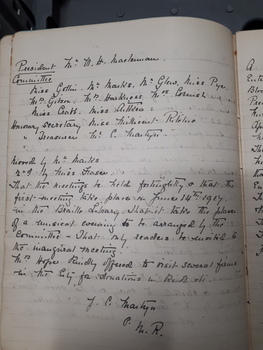 President Mr. W. H. Masterman.
Committee
Miss Gollin. Mr. Marks. Mr. Glew, Miss Pye.
Mrs. Gibson. Mrs. Harkness. Mrs. Cornish
Miss Coats. Miss
Honorary secretary Miss Millicent
Treasurer Mr. C. Martyn
Moved by Mr. Marks
by Miss Fraser
That the meetings be held fortnightly & that the
first meeting take place on June 14th 1907
in the Braille Library. That it take the place
of a musical evening to be arranged by the
Committee - That only readers be invited to
the inaugural meeting.
Mrs. Hope kindly offered to visit several firms
in the City for donations in
J. C. Martyn